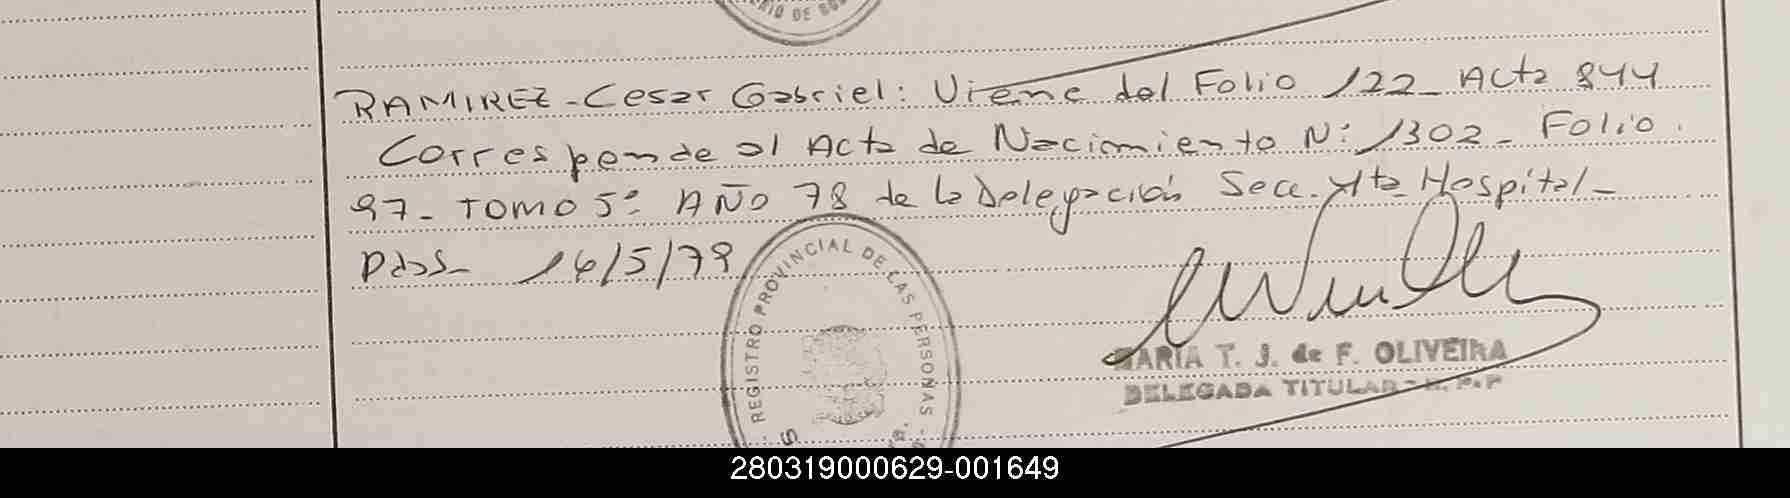 RIO DE GOB
RAMIREZ - Cesar Gabriel: Viene del Folio 122 - Acta 844
Corresponde al Acta de Nacimiento N: 1302 - Folio
97 - TOMO 5º AÑO 78 de la Delegación Secc. 4ta Hospital -
Pdas - 14/5/79
REGISTRO PROVINCIAL DE LAS PERSONAS
MARIA T. J. de F. OLIVEIRA
DELEGADA TITULAR
280319000629-001649